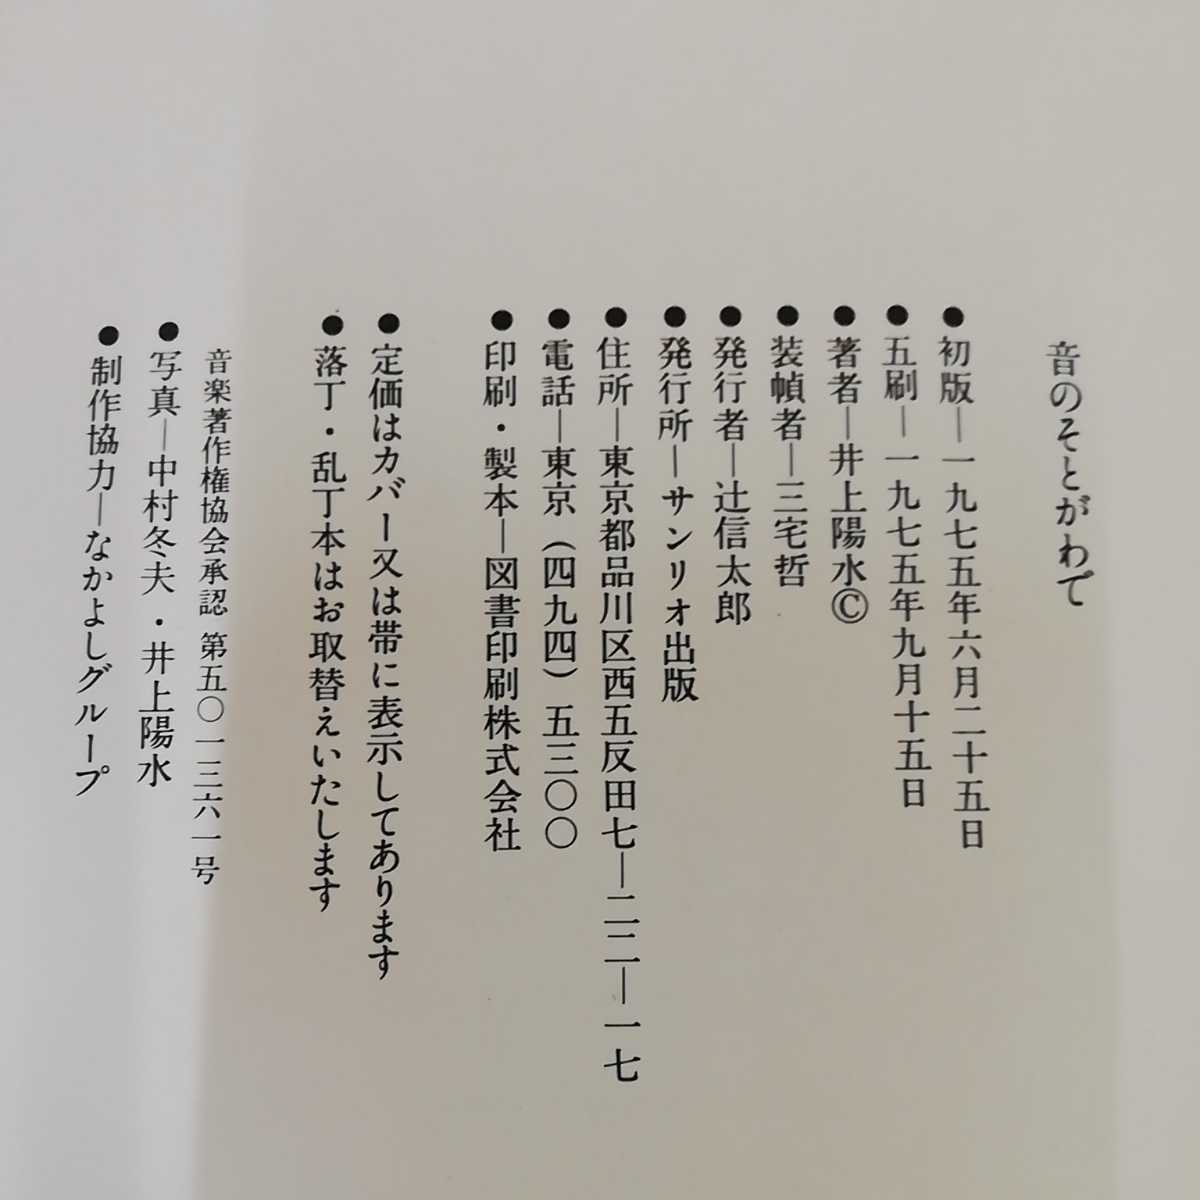 音のそとがわで
●初版―一九七五年六月二十五日
●五刷―一九七五年九月十五日
●著者―井上陽水Ⓒ
●装幀者―三宅哲
●発行者―辻信太郎
●発行所―サンリオ出版
●住所―東京都品川区西五反田七―二二―一七
●電話―東京（四九四）五三〇〇
●印刷・製本―図書印刷株式会社
●定価はカバー又は帯に表示してあります
●落丁・乱丁本はお取替えいたします
音楽著作権協会承認 第五〇一三六一号
●写真―中村冬夫・井上陽水
●制作協力―なかよしグループ